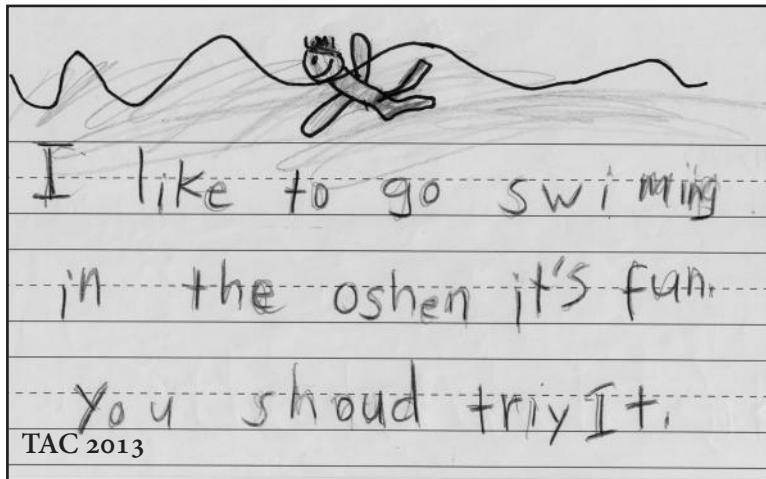 I like to go swiming
in the oshen it's fun.
You shoud triy It.
TAC 2013